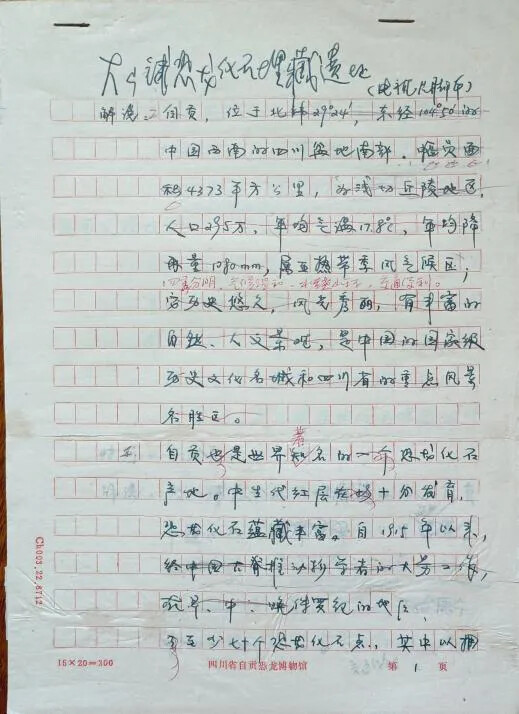 大山铺恐龙化石埋藏遗址
(电视片解说)
解说：自贡，位于北纬29°24′，东经104°50′的
中国西南的四川盆地南部，幅员面
积4373平方公里，为浅切丘陵地区，
人口295万，年均气温17.8℃，年均降
雨量1080mm，属亚热带季风气候区；
四季分明，气候温和，交通便利。
历史悠久，风光秀丽，有丰富的
自然、人文景观，是中国的国家级
历史文化名城和四川省的重点风景
名胜区。
自贡也是世界著名的一个恐龙化石
产地。中生代红层在境十分发育，
恐龙化石蕴藏丰富。自1915年以来，
经中国古脊椎动物学者的大量工作，
在早、中、晚侏罗纪的地层
至少七十个恐龙化石点，其中以
Ch003.22.8712
15×20=300
四川省自贡恐龙博物馆
第 1 页